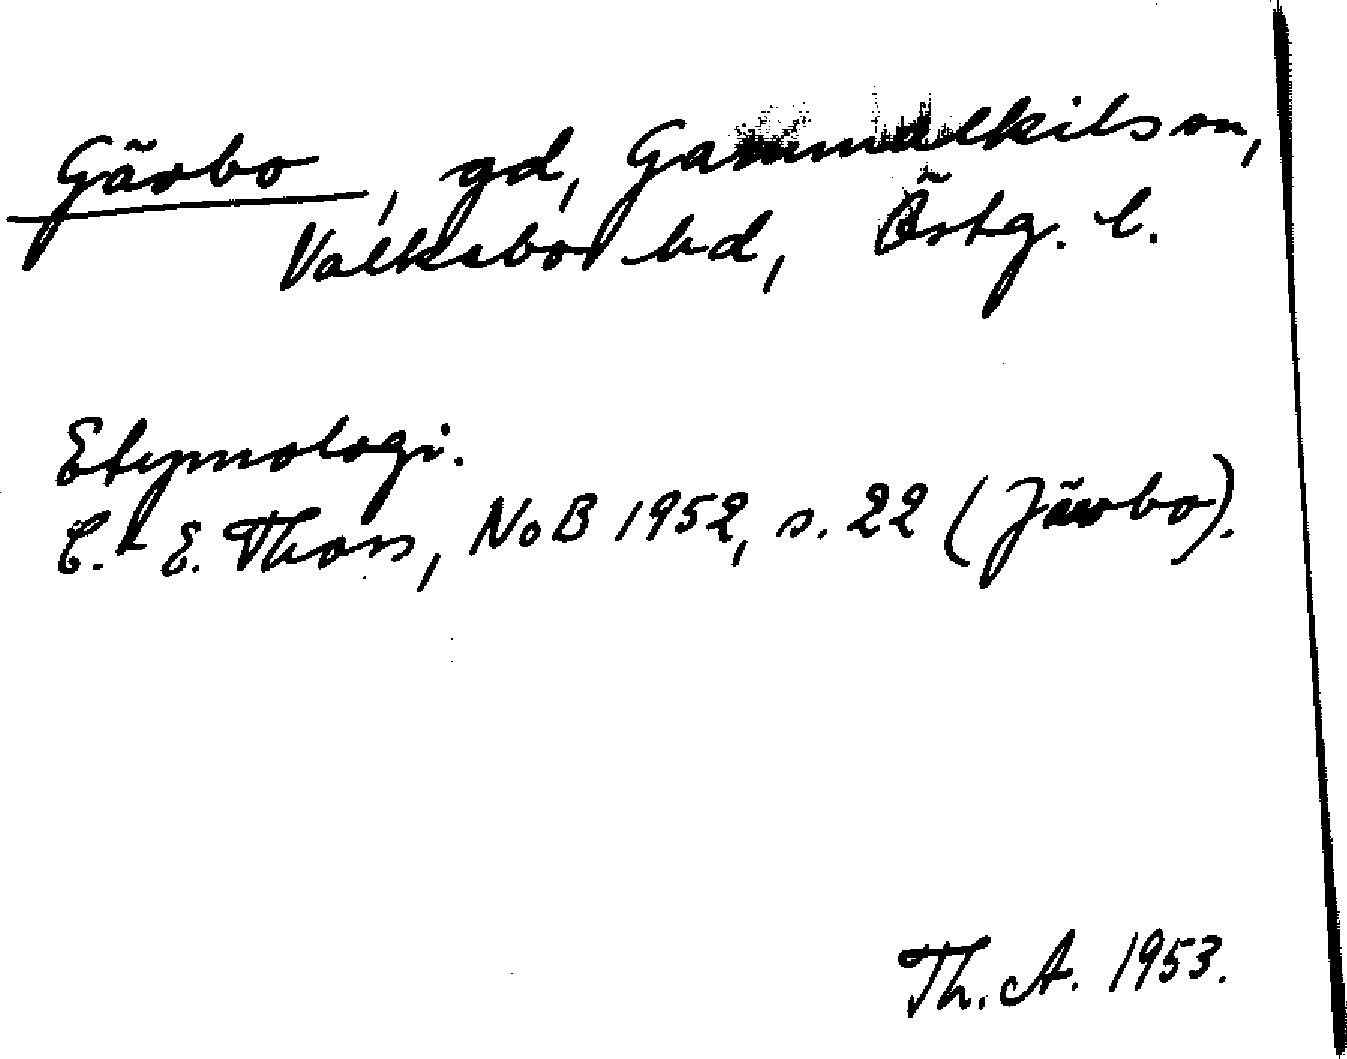 Gärbo, gd, Gammalkils sn,
Valkebo hd, Östg. l.
Etymologi.
C.-E. Thors, NoB 1952, s. 22 (Järbo).
Th. A. 1953.